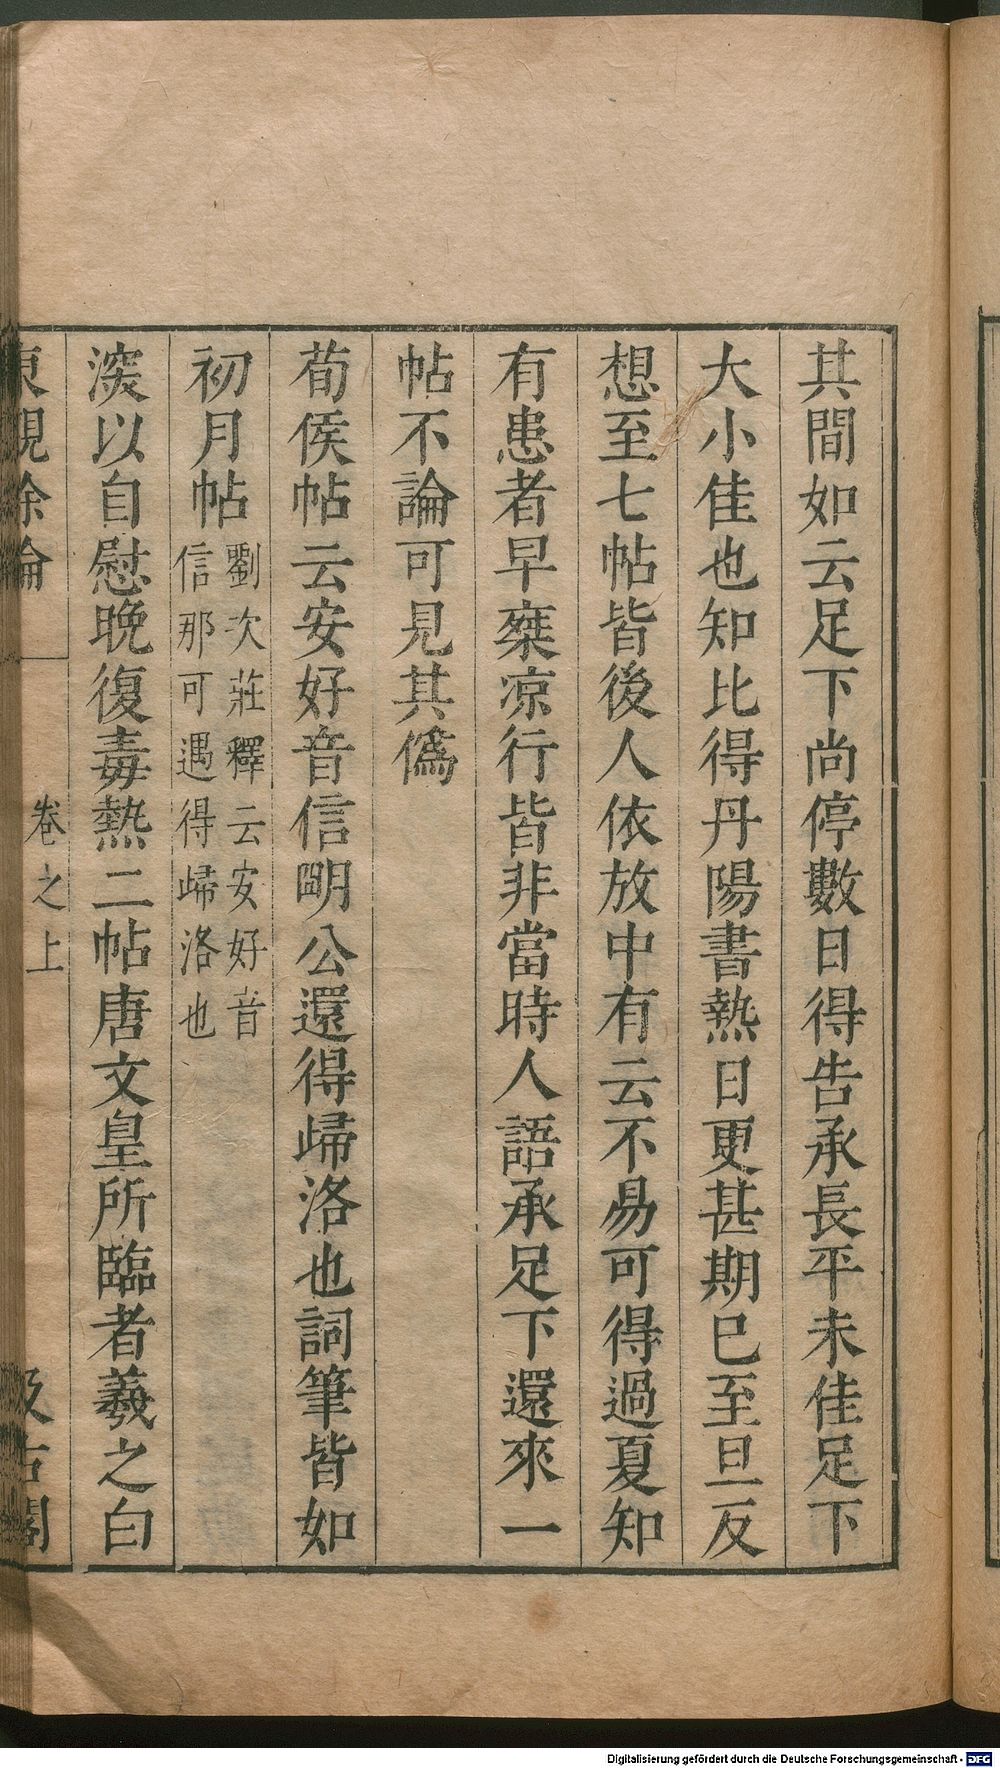 其間如云足下尚停數日得告承長平未佳足下
大小佳也知比得丹陽書熱日更甚期巳至旦反
想至七帖皆後人依放中有云不易可得過夏知
有患者早🀄凉行皆非當時人語承足下還來一
帖不論可見其僞
荀侯帖云安好音信朙公還得歸洛也詞筆皆如
初月帖劉次莊釋云安好音
信那可遇得歸洛也
深以自慰晚復毒熱二帖唐文皇所臨者羲之白
東觀餘論 卷之上 汲古閣
Digitalisierung gefördert durch die Deutsche Forschungsgemeinschaft - DFG